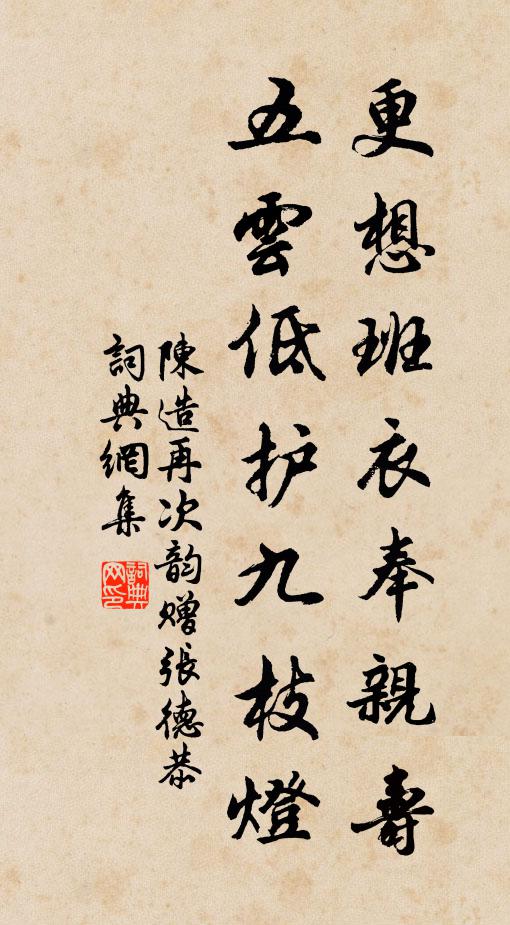 更想班衣奉親壽
五雲低护九枝燈
陳造再次韵赠張德恭
詞典網集
詞典网印